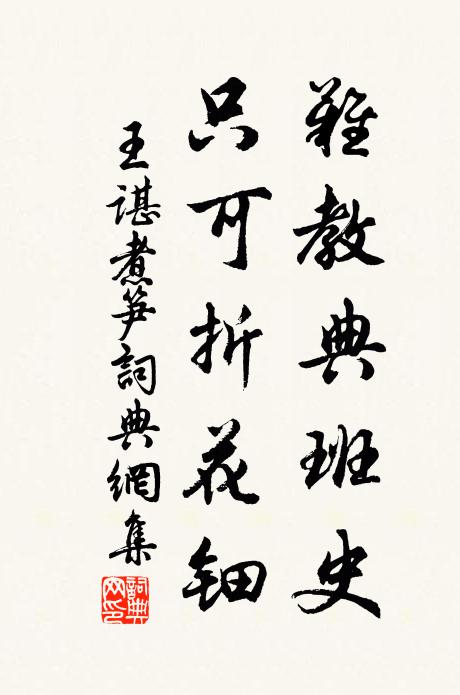 難教典班史
只可折花鈿
王諶煮笋詞典網集
詞典網印